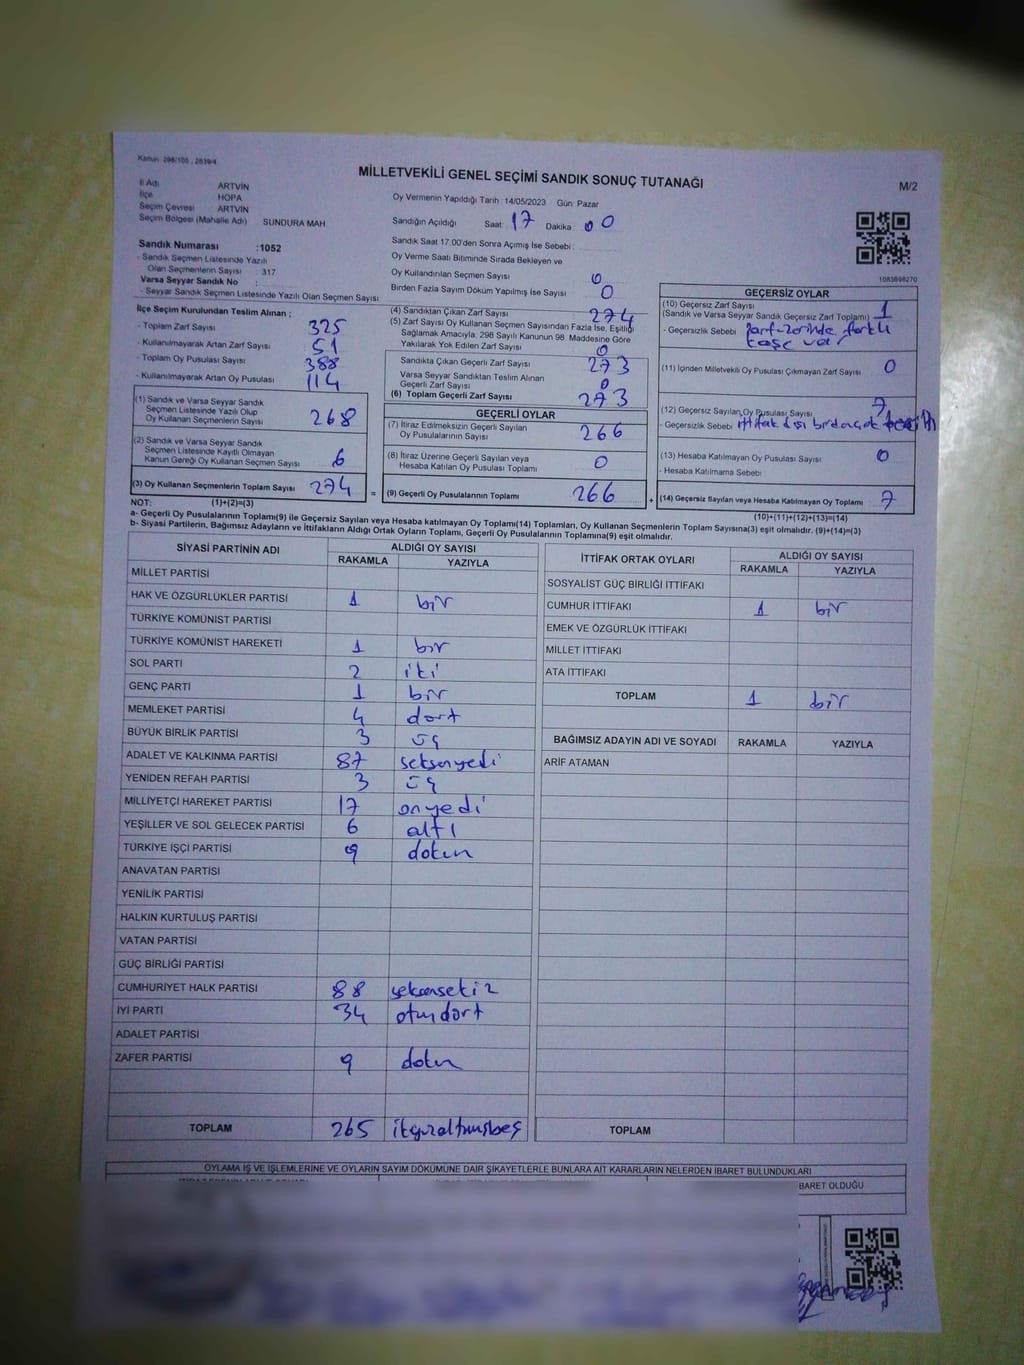 Kanun: 298/105 , 2839/4
MİLLETVEKİLİ GENEL SEÇİMİ SANDIK SONUÇ TUTANAĞI
M/2
İl Adı ARTVİN
İlçe HOPA
Seçim Çevresi ARTVİN
Seçim Bölgesi (Mahalle Adı) SUNDURA MAH.
Oy Vermenin Yapıldığı Tarih 14/05/2023 Gün Pazar
Sandığın Açıldığı Saat 17 Dakika 00
Sandık Saat 17.00'den Sonra Açımış İse Sebebi :
Oy Verme Saati Bitiminde Sırada Bekleyen ve
Oy Kullandırılan Seçmen Sayısı 0
Birden Fazla Sayım Döküm Yapılmış İse Sayısı 0
Sandık Numarası :1052
- Sandık Seçmen Listesinde Yazılı
Olan Seçmenlerin Sayısı : 317
Varsa Seyyar Sandık No :
- Seyyar Sandık Seçmen Listesinde Yazılı Olan Seçmen Sayısı
1083698270
İlçe Seçim Kurulundan Teslim Alınan ;
- Toplam Zarf Sayısı 325
- Kullanılmayarak Artan Zarf Sayısı 51
- Toplam Oy Pusulası Sayısı 388
- Kullanılmayarak Artan Oy Pusulası 114
(1) Sandık ve Varsa Seyyar Sandık
Seçmen Listesinde Yazılı Olup
Oy Kullanan Seçmenlerin Sayısı 268
(2) Sandık ve Varsa Seyyar Sandık
Seçmen Listesinde Kayıtlı Olmayan
Kanun Gereği Oy Kullanan Seçmen Sayısı 6
(3) Oy Kullanan Seçmenlerin Toplam Sayısı 274 =
(4) Sandıktan Çıkan Zarf Sayısı 274
(5) Zarf Sayısı Oy Kullanan Seçmen Sayısından Fazla İse, Eşitliği
Sağlamak Amacıyla, 298 Sayılı Kanunun 98. Maddesine Göre
Yakılarak Yok Edilen Zarf Sayısı 0
Sandıkta Çıkan Geçerli Zarf Sayısı 273
Varsa Seyyar Sandıktan Teslim Alınan
Geçerli Zarf Sayısı 0
(6) Toplam Geçerli Zarf Sayısı 273
GEÇERLİ OYLAR
(7) İtiraz Edilmeksizin Geçerli Sayılan
Oy Pusulalarının Sayısı 266
(8) İtiraz Üzerine Geçerli Sayılan veya
Hesaba Katılan Oy Pusulası Toplamı 0
(9) Geçerli Oy Pusulalarının Toplamı 266 +
GEÇERSİZ OYLAR
(10) Geçersiz Zarf Sayısı
(Sandık ve Varsa Seyyar Sandık Geçersiz Zarf Toplamı) 1
- Geçersizlik Sebebi zarf üzerinde farklı
kaşe var
(11) İçinden Milletvekili Oy Pusulası Çıkmayan Zarf Sayısı 0
(12) Geçersiz Sayılan Oy Pusulası Sayısı 7
- Geçersizlik Sebebi ittifak dışı birden çok tercih
(13) Hesaba Katılmayan Oy Pusulası Sayısı 0
- Hesaba Katılmama Sebebi :
(14) Geçersiz Sayılan veya Hesaba Katılmayan Oy Toplamı 7
NOT: (1)+(2)=(3)
(10)+(11)+(12)+(13)=(14)
a- Geçerli Oy Pusulalarının Toplamı(9) ile Geçersiz Sayılan veya Hesaba katılmayan Oy Toplamı(14) Toplamları, Oy Kullanan Seçmenlerin Toplam Sayısına(3) eşit olmalıdır. (9)+(14)=(3)
b- Siyasi Partilerin, Bağımsız Adayların ve İttifakların Aldığı Ortak Oyların Toplamı, Geçerli Oy Pusulalarının Toplamına(9) eşit olmalıdır.
SİYASİ PARTİNİN ADI ALDIĞI OY SAYISI
RAKAMLA YAZIYLA
MİLLET PARTİSİ
HAK VE ÖZGÜRLÜKLER PARTİSİ 1 bir
TÜRKİYE KOMÜNİST PARTİSİ
TÜRKİYE KOMÜNİST HAREKETİ 1 bir
SOL PARTİ 2 iki
GENÇ PARTİ 1 bir
MEMLEKET PARTİSİ 4 dört
BÜYÜK BİRLİK PARTİSİ 3 üç
ADALET VE KALKINMA PARTİSİ 87 seksenyedi
YENİDEN REFAH PARTİSİ 3 üç
MİLLİYETÇİ HAREKET PARTİSİ 17 onyedi
YEŞİLLER VE SOL GELECEK PARTİSİ 6 altı
TÜRKİYE İŞÇİ PARTİSİ 9 dokuz
ANAVATAN PARTİSİ
YENİLİK PARTİSİ
HALKIN KURTULUŞ PARTİSİ
VATAN PARTİSİ
GÜÇ BİRLİĞİ PARTİSİ
CUMHURİYET HALK PARTİSİ 88 seksensekiz
İYİ PARTİ 34 otuzdört
ADALET PARTİSİ
ZAFER PARTİSİ 9 dokuz
TOPLAM 265 ikiyüzaltmışbeş
İTTİFAK ORTAK OYLARI ALDIĞI OY SAYISI
RAKAMLA YAZIYLA
SOSYALİST GÜÇ BİRLİĞİ İTTİFAKI
CUMHUR İTTİFAKI 1 bir
EMEK VE ÖZGÜRLÜK İTTİFAKI
MİLLET İTTİFAKI
ATA İTTİFAKI
TOPLAM 1 bir
BAĞIMSIZ ADAYIN ADI VE SOYADI RAKAMLA YAZIYLA
ARİF ATAMAN
TOPLAM
OYLAMA İŞ VE İŞLEMLERİNE VE OYLARIN SAYIM DÖKÜMÜNE DAİR ŞİKAYETLERLE BUNLARA AİT KARARLARIN NELERDEN İBARET BULUNDUKLARI
BARET OLDUĞU